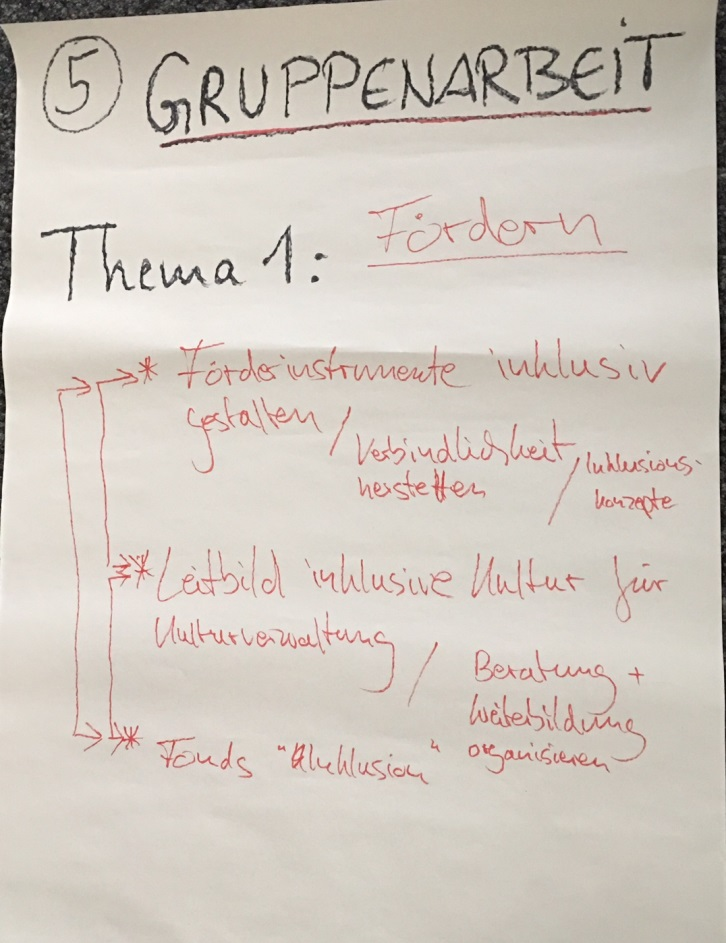 5 GRUPPENARBEIT
Thema 1: Fördern
* Förderinstrumente inklusiv
gestalten / Verbindlichkeit
herstellen / Inklusions-
konzepte
* Leitbild inklusive Kultur für
Kulturverwaltung / Beratung +
Weiterbildung
organisieren
* Fonds "Inklusion"